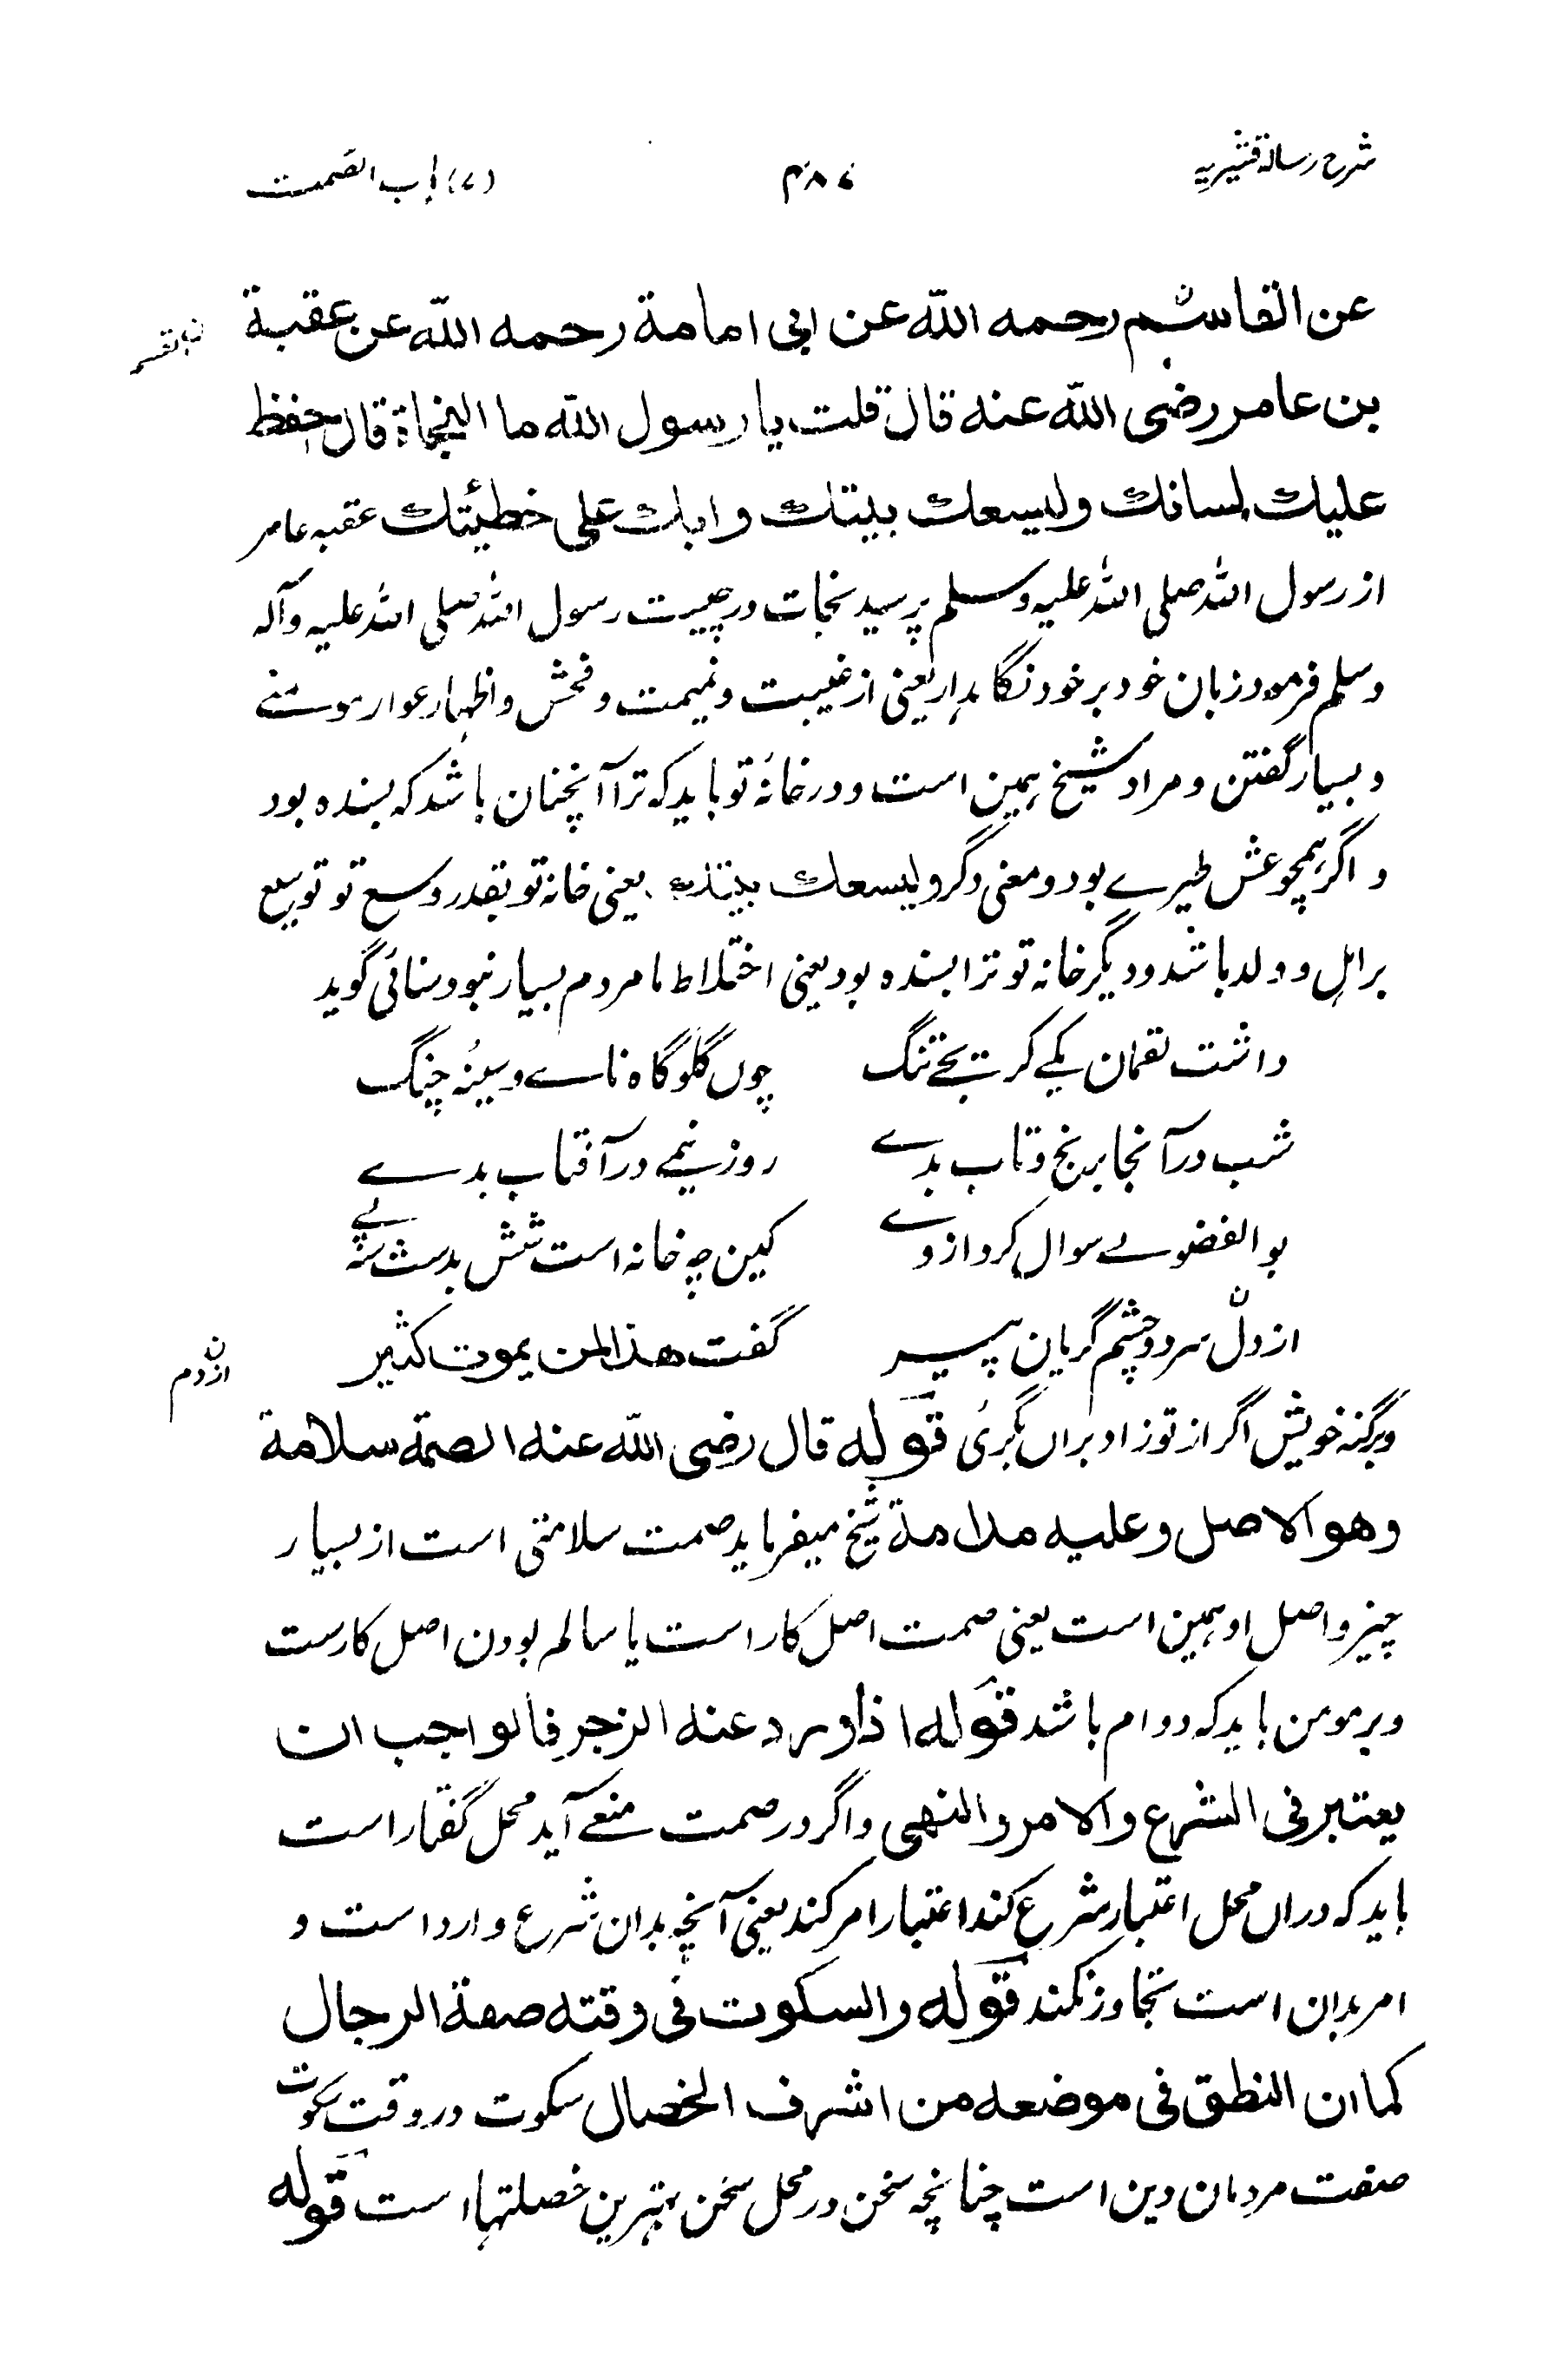 شرح رسالہ قشیریہ
۴۸۷
(۷) باب الصمت
عن القاسم رحمه الله عن ابی امامة رحمه الله عن عقبة
بن عامر رضی الله عنه قال قلت یا رسول الله ما النجاة قال احفظ
علیك لسانك ولیسعك بیتك وابك علی خطیئتك عقبه عامر
از رسول اللہ صلی اللہ علیہ وسلم پرسید نجات در چیست رسول اللہ صلی اللہ علیہ وآلہ
وسلم فرمود زبان خود بر خود نگاہدار یعنی از غیبت و نمیمت و فحش و اظہار عوار مومنے
و بسیار گفتن و مراد شیخ ہمین است و در خانۂ تو باید کہ ترا آنچنان باشد کہ بسندہ بود
و اگر ہمچو عش طیرے بود و معنی دگر ولیسعك بیتك یعنی خانہ تو بقدر وسع تو توسیع
بر اہل و ولد باشد و دیگر خانہ تو ترا بسندہ بود یعنی اختلاط با مردم بسیار نبود سنائی گوید
داشت لقمان یکے کریجے تنگ
چوں گلوگاہ نائے و سینۂ چنگ
شب در آنجا برنج و تاب بدے
روز نیمے در آفتاب بدے
بوالفضولے سوال کرد از وے
کین چہ خانہ است شش بدست سہ پے
از دل سرد و چشم گریان پیر
گفت هذا لمن یموت کثیر
از دم
وبرگنہ خویش اگر از تو زاد بران بگرئ قوله قال رضی الله عنه الصمة سلامة
وهو الاصل وعلیه ملامة شیخ میفرماید صمت سلامتی است از بسیار
چیز و اصل او ہمین است یعنی صمت اصل کار است یا سالم بودن اصل کارست
و بر مومن باید کہ دوام باشد قوله اذا ورد عنه الزجر فالواجب ان
یعتبر فی الشرع والامر والنهی و اگر در صمت منعے آید محل گفتار است
باید کہ دراں محل اعتبار شرع کند اعتبار امر کند یعنی آنچہ بدان شرع وارد است و
امر بدان است تجاوز نکند قوله والسکوت فی وقته صفة الرجال
کما ان النطق فی موضعه من اشرف الخصال سکوت در وقت سکوت
صفت مردمان دین است چنانچہ سخن در محل سخن بہترین خصلتہا است قوله